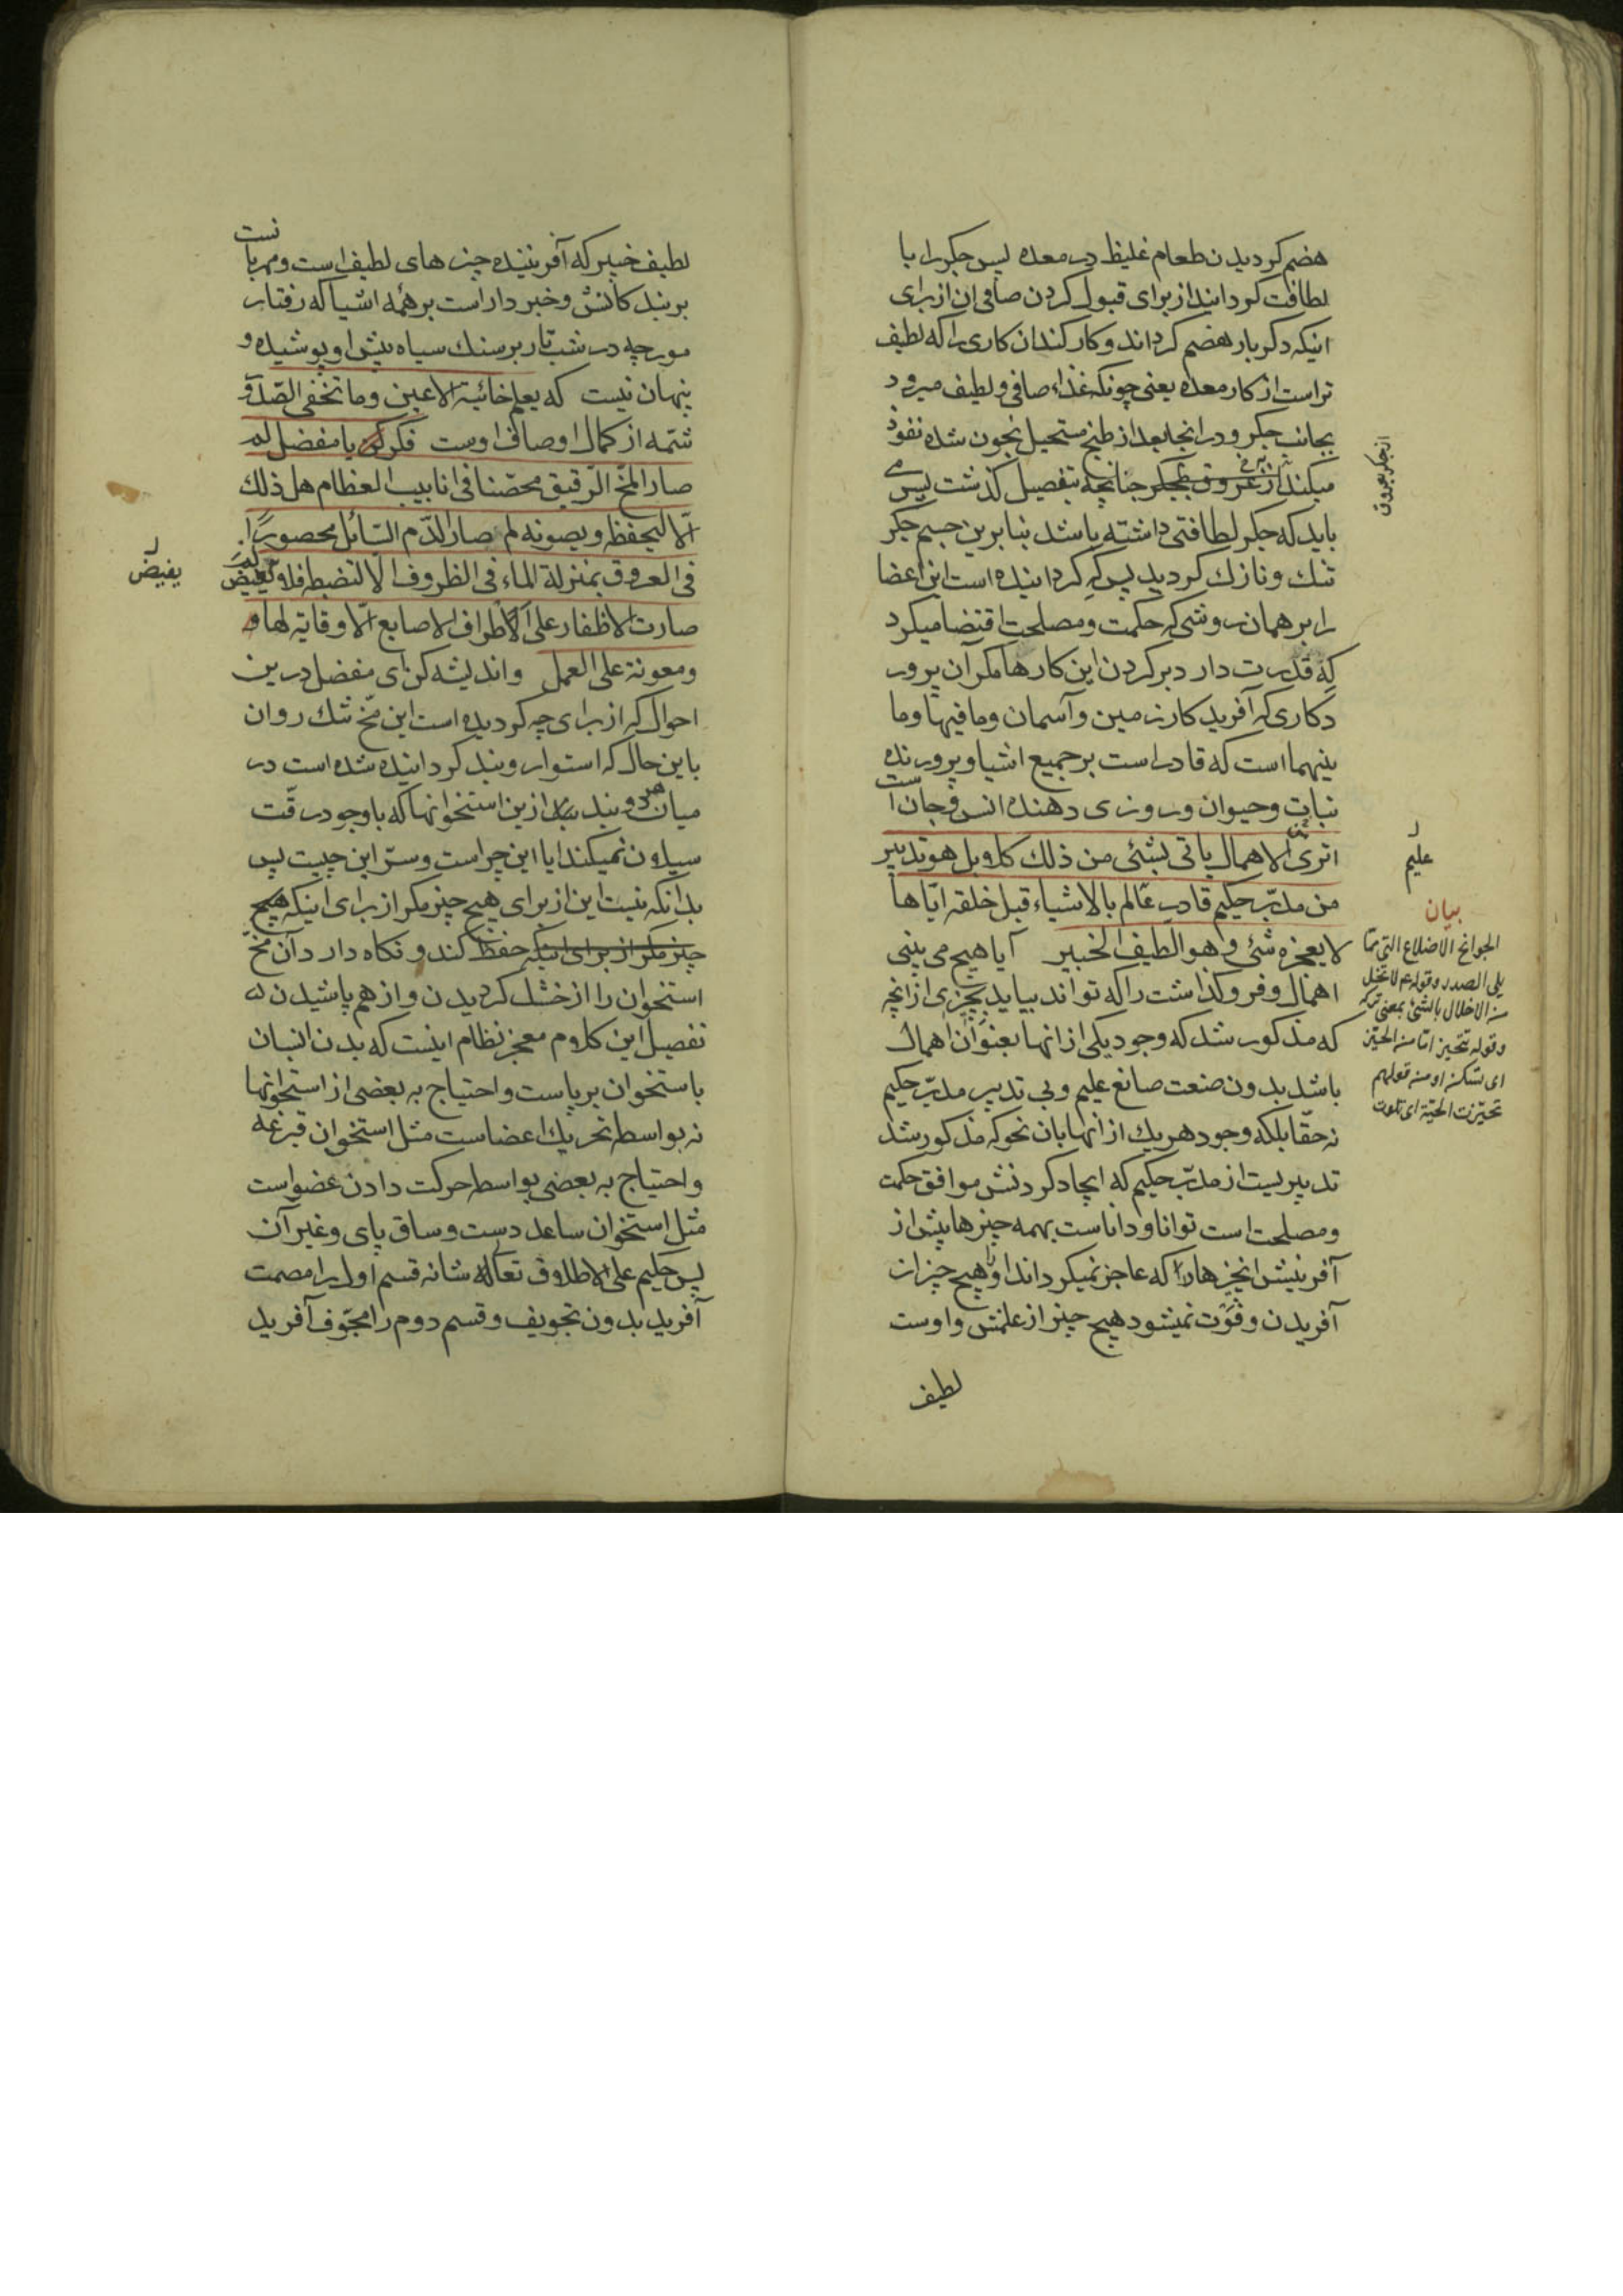 هضم کردیدن طعام غلیظ در معده پس جکر را با
لطافت کردانید از برای قبول کردن صافی ان از برای
اینکه دکر بار هضم کرداند و کار کند ان کاری را که لطیف
تر است از کار معده یعنی چونکه غذاء صافی و لطیف میرود
بجانب جکر و در انجا بعد از طبخ مستحیل بخون شده نفوذ
میکند از عروق بجکر چنانچه بتفصیل کذشت پس می
باید که جکر لطافتی داشته باشد بنا برین جسم جکر
تنک و نازک کردید پس که کردانیده است این اعضا
را بر همان روشی که حکمت و مصلحت اقتضا میکرد
که قدرت دارد بر کردن این کارها مکر آن پرور
دکاری که آفرید کار زمین و آسمان و ما فیها و ما
بینهما است که قادر است بر جمیع اشیا و پرورنده
نبات و حیوان و روزی دهنده انس و جان است
اتری الاهمال یاتی بشئی من ذلک کلا بل هو تدبیر
من مدبّر حکیم قادر عالم بالاشیاء قبل خلقه ایّاها
لا یعجزه شئی و هو الطیف الخبیر آیا هیچ می بینی
اهمال و فرو کذاشت را که تواند بیاید بچیزی از انچه
که مذکور شد که وجود یکی از انها بعنوان اهمال
باشد بدون صنعت صانع علیم و بی تدبیر مدبّر حکیم
نه حقا بلکه وجود هریک از انها بان نحو که مذکور شد
تدبیریست از مدبّر حکیم که ایجاد کردنش موافق حکمت
و مصلحت است توانا و داناست بهمه چیزها پیش از
آفرینش انچیزها را که عاجز نمیکرداند او را هیچ چیز از
آفریدن و فوت نمیشود هیچ چیز از علمش و اوست
لطیف
از جکر بعروق
علیم
بیان
الجوانح الاضلاع التی ممّا
یلی الصدر و قوله ع لا تخل
من الاخلال بالشئ بمعنی ترکه
و قوله تتحیز امّا من الحیّز
ای تسکن او من قولهم
تحیّزت الحیّة ای تلوت
لطیف خبیر که آفریننده چیزهای لطیف است و مهربانست
بر بندکانش و خبر دار است بر همه اشیا که رفتار
مورچه در شب تار بر سنک سیاه پیش او پوشیده و
پنهان نیست که یعلم خائنة الاعین و ما تخفی الصّدور
شمّه از کمال اوصاف اوست فکر یا مفضل لم
صار المخّ الرّقیق محصّنا فی انابیب العظام هل ذلک
الّا لیحفظه و یصونه لم صار الدّم السّائل محصورًا
فی العروق بمنزلة الماء فی الظروف الّا لتضبطه فلا یفیض لم
صارت الاظفار علی اطراف الاصابع الّا وقایة لها و
و معونة علی العمل و اندیشه کن ای مفضل درین
احوال که از برای چه کردیده است این مخّ تنک روان
باین حال که استوار و بند کردانیده شده است در
میان هر دو بند از این استخوانها که با وجود رقّت
سیلان نمیکند ایا این چراست و سرّ این چیست پس
بدانکه نیست این از برای هیچ چیز مکر از برای اینکه هیچ
چیز مکر از برای اینکه حفظ کند و نکاه دارد آن مخّ
استخوان را از خشک کردیدن و از هم پاشیدن که
تفصیل این کلام معجز نظام اینست که بدن انسان
باستخوان بر پاست و احتیاج به بعضی از استخوانها
نه بواسطه تحریک اعضاست مثل استخوان قبرغه
و احتیاج به بعضی بواسطه حرکت دادن عضو است
مثل استخوان ساعد دست و ساق پای و غیر آن
پس حکیم علی الاطلاق تعالی شانه قسم اول را مصمت
آفرید بدون تجویف و قسم دوم را مجوّف آفرید
یفیض